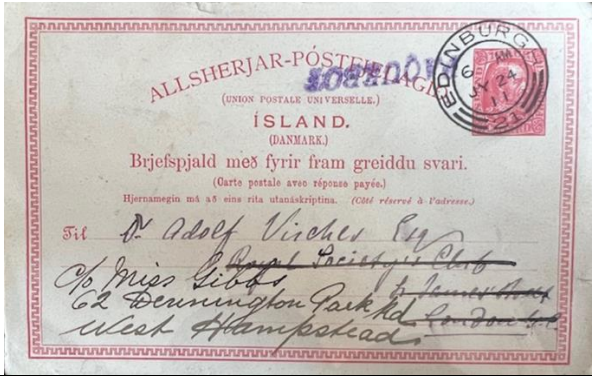 PAQUEBOT
ALLSHERJAR-PÓSTFJELAGIÐ
EDINBURGH
JY 24
11
21
(UNION POSTALE UNIVERSELLE.)
ÍSLAND.
(DANMARK.)
Brjefspjald með fyrir fram greiddu svari.
(Carte postale avec réponse payée.)
Hjernamegin má að eins rita utanáskriptina. (Côté réservé à l'adresse.)
Til Dr. Adolf Vischer Esq
Royal Society's Club
St James' Street
London S.W.
c/o Miss Gibbs
62 Dennington Park Rd
West Hampstead